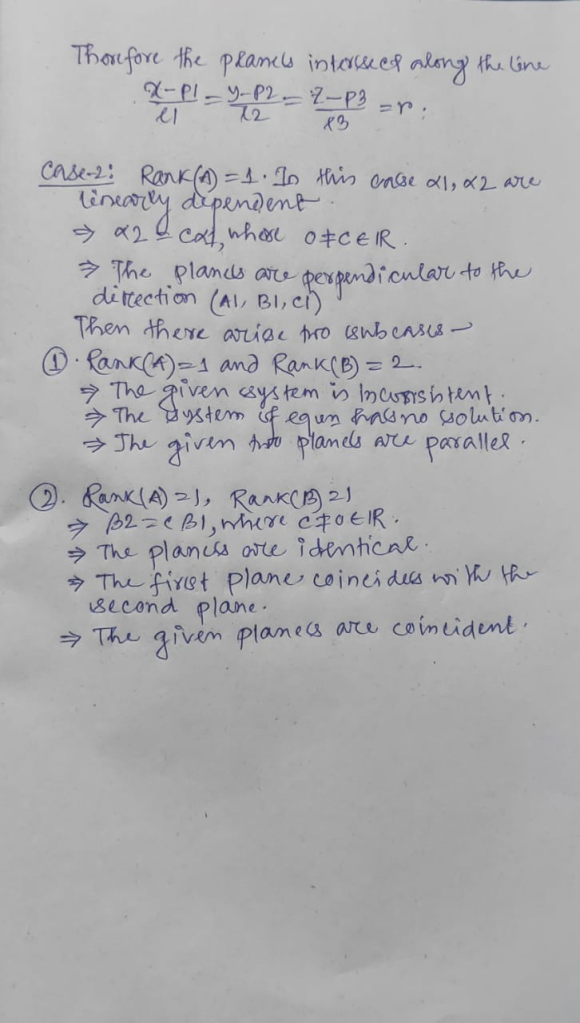 Therefore the planes intersect along the line
x-p1/l1 = y-p2/l2 = z-p3/l3 = r.
Case-2: Rank(A) = 1. In this case α1, α2 are
linearly dependent.
⇒ α2 = cα1, where 0≠c∈R.
⇒ The planes are perpendicular to the
direction (A1, B1, C1)
Then there arise two subcases →
①. Rank(A)=1 and Rank(B) = 2.
⇒ The given system is Inconsistent.
⇒ The system of equn has no solution.
⇒ The given two planes are parallel.
②. Rank(A)=1, Rank(B)=1
⇒ β2=cβ1, where c≠0∈R.
⇒ The planes are identical.
⇒ The first plane coincides with the
second plane.
⇒ The given planes are coincident.